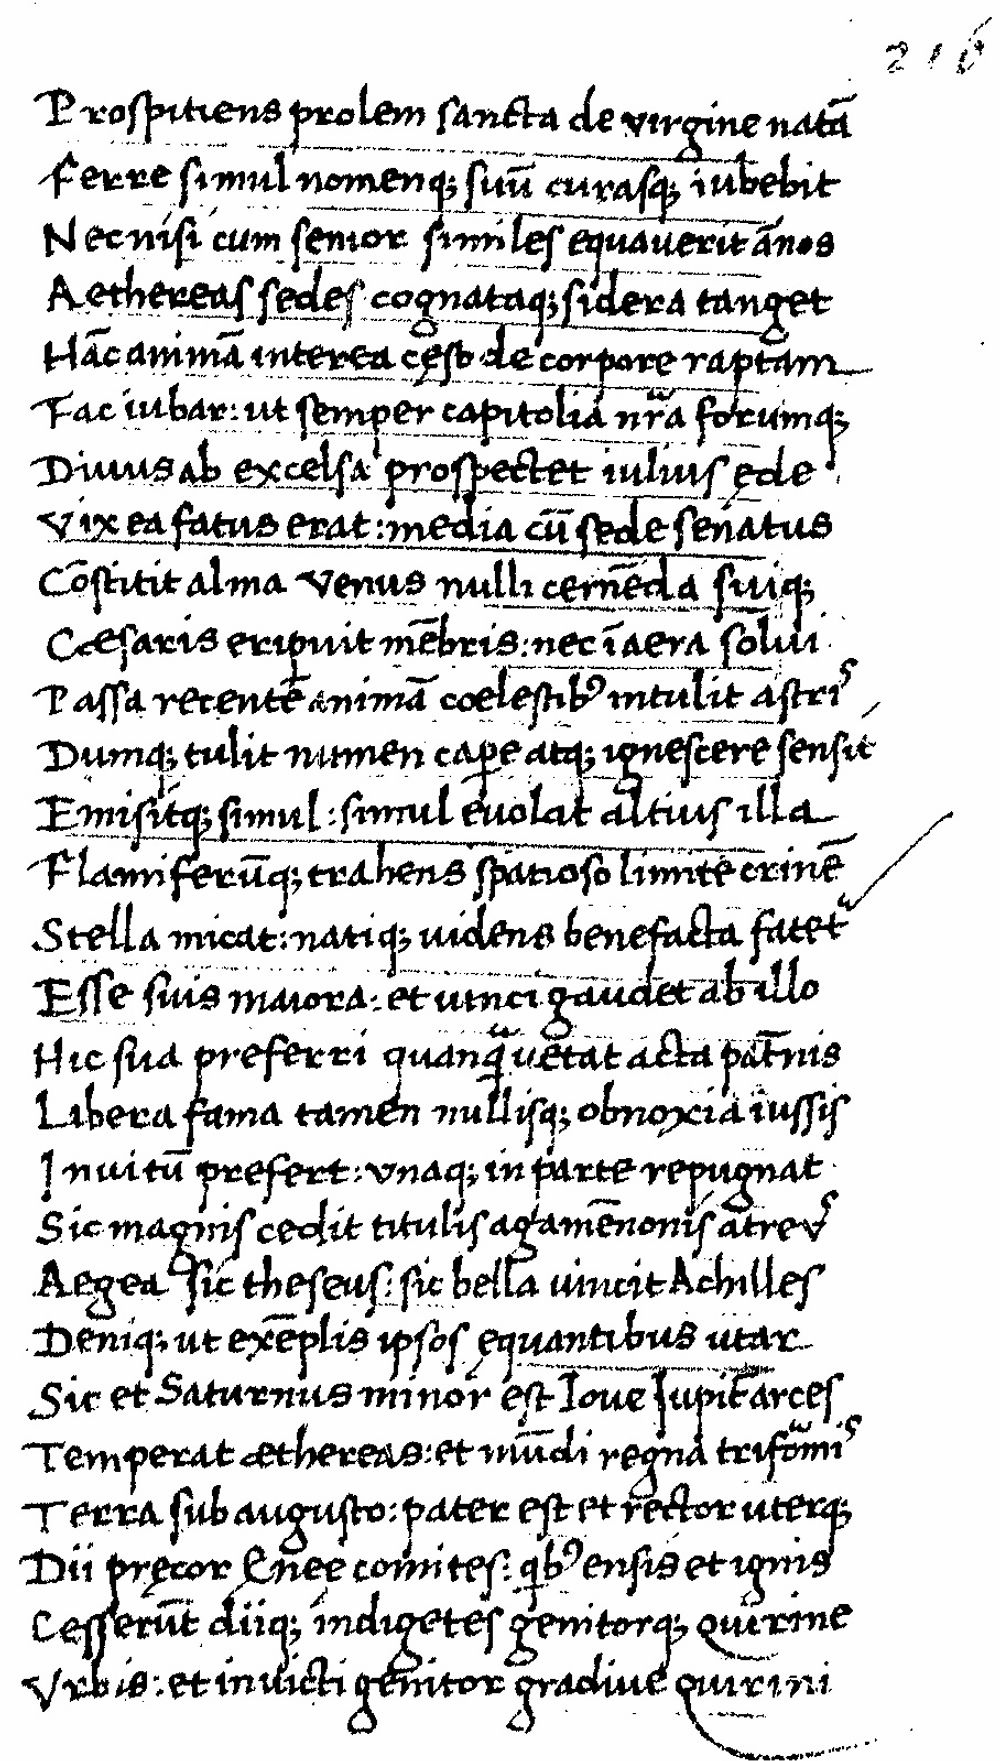 216
Prospitiens prolem sancta de virgine natā
Ferre simul nomenq; suū curasq; iubebit
Nec nisi cum senior similes equauerit ānos
Aethereas sedes cognataq; sidera tanget
Hāc animā interea cęso de corpore raptam
Fac iubar: ut semper capitolia nr̄a forumq;
Diuus ab excelsa prospectet iulius ęde
Vix ea fatus erat: media cū sede senatus
Cōstitit alma Venus nulli cernēda suiq;
Cæsaris eripuit mēbris: nec ī aera solui
Passa recentē animā coelestibꝰ intulit astris
Dumq; tulit numen caꝑe atq; ignescere sensit
Emisitq; simul: simul euolat altius illa
Flamiferūq; trahens spatioso limite crinē
Stella micat: natiq; uidens benefacta fatet᷑
Esse suis maiora: et uinci gaudet ab illo
Hic sua preferri quanqᷓ uetat acta pat̄nis
Libera fama tamen nullisq; obnoxia iussis
Inuitū prefert: vnaq; in parte repugnat
Sic magnis cedit titulis agamēnonis atreus
Aegea sic theseus: sic bella uincit Achilles
Deniq; ut exēplis ipsos ęquantibus utar
Sic et Saturnus minor est Ioue Iupit̄ arces
Temperat æthereas: et mūdi regna trifoᷓmis
Terra sub augusto: pater est et rector uterq;
Dii pręcor Enee comites: qbꝰ ensis et ignis
Cesserūt diiq; indigetes genitorq; quirine
Vrbis: et inuicti genitor gradiue quirini